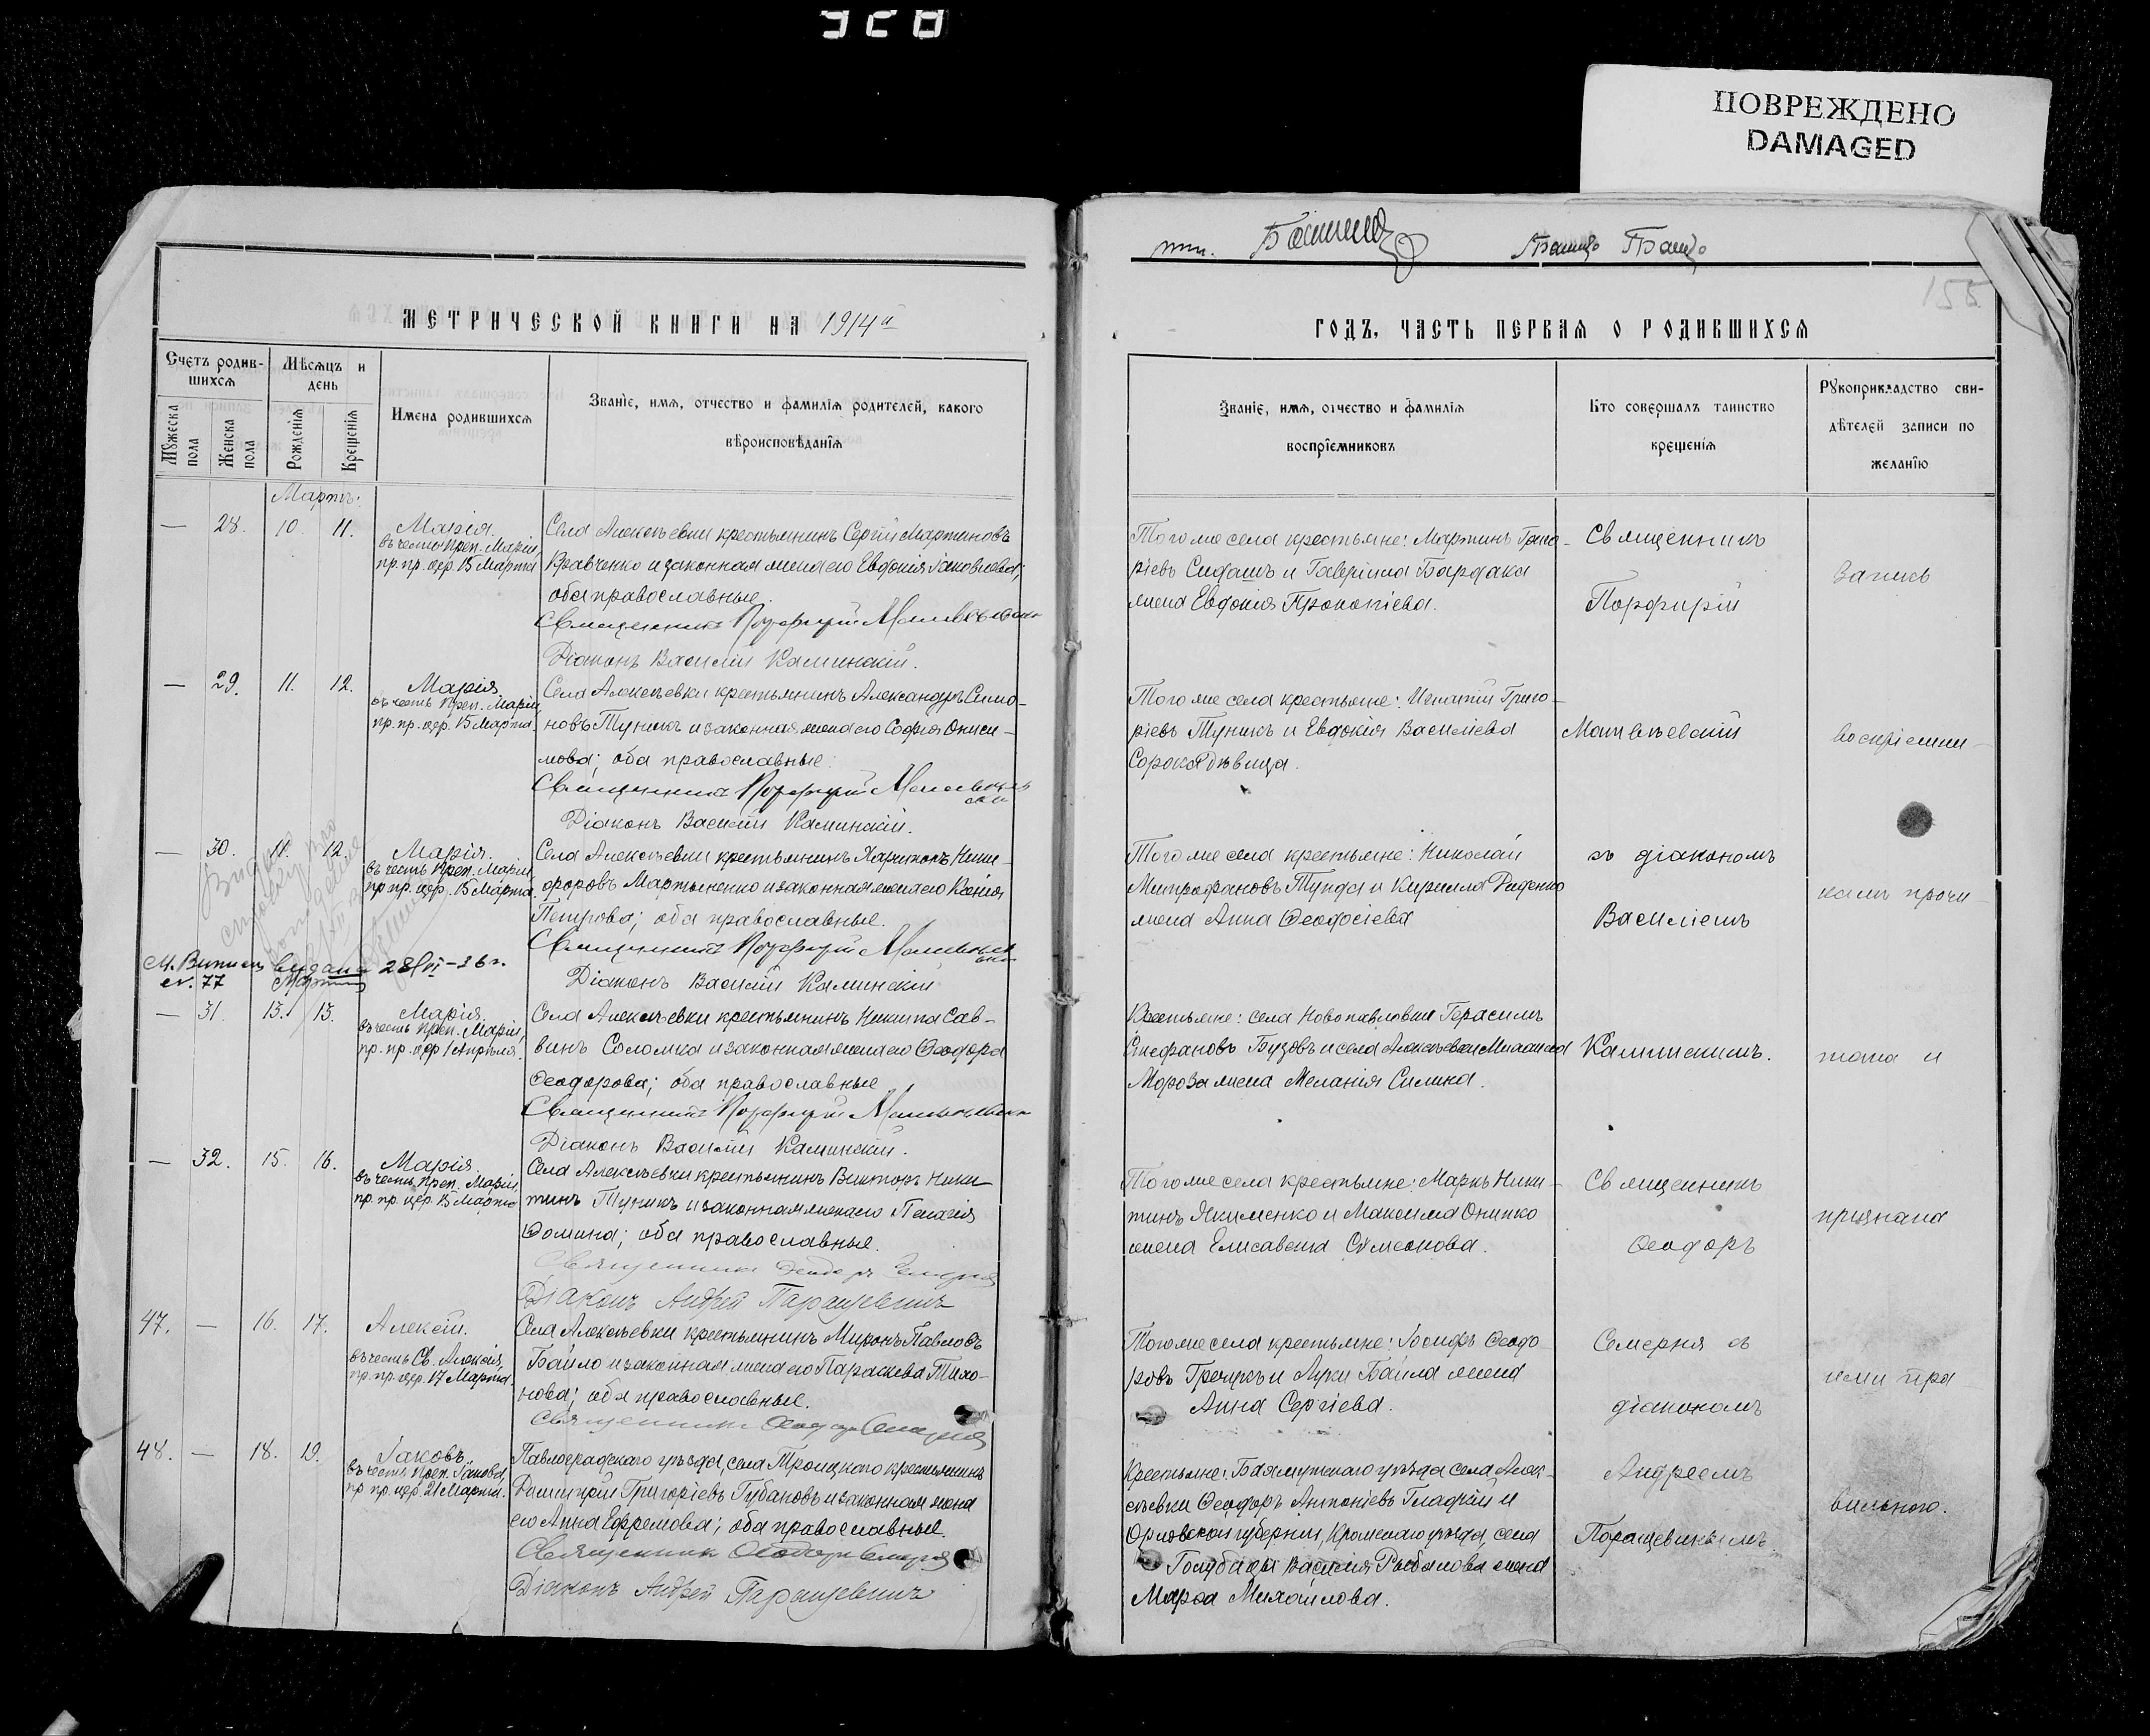 328
ПОВРЕЖДЕНО
DAMAGED
155
МЕТРИЧЕСКОЙ КНИГИ НА 1914й
ГОДЪ, ЧАСТЬ ПЕРВАЯ О РОДИВШИХСЯ
Счетъ родив-
шихся
Мѣсяцъ и
день
Мужеска
пола
Женска
пола
Рожденія
Крещенія
Имена родившихся
Званіе, имя, отчество и фамилія родителей, какого
вѣроисповѣданія
Званіе, имя, отчество и фамилія
воспріемниковъ
Кто совершалъ таинство
крещенія
Рукоприкладство сви-
дѣтелей записи по
желанію
Мартъ.
— 28. 10. 11.
Марія.
въ честь Преп. Маріи,
пр. пр. цер. 15 Марта
Села Алексѣевки крестьянинъ Сергій Мартиновъ
Кравченко и законная жена его Евдокія Іаковлева;
оба православные.
Священникъ Порфирій
Діаконъ Василій Каминскій.
Того же села крестьяне: Мартинъ Григо-
ріевъ Сидашъ и Гавріила Бардака
жена Евдокія Прокопіева.
— 29. 11. 12.
Марія.
въ честь Преп. Маріи,
пр. пр. цер. 15 Марта.
Села Алексѣевки крестьянинъ Александръ Симо-
новъ Туникъ и законная жена его Софія Ониси-
мова; оба православные.
Священникъ Порфирій
Діаконъ Василій Каминскій.
Того же села крестьяне: Игнатій Григо-
ріевъ Туникъ и Евдокія Василіева
Сорока дѣвица.
— 30. 11. 12.
Марія.
въ честь Преп. Маріи,
пр. пр. цер. 15 Марта.
Села Алексѣевки крестьянинъ Харитонъ Ники-
форовъ Мартыненко и законная жена его Ксенія
Петрова; оба православные.
Священникъ Порфирій
Діаконъ Василій Каминскій
Того же села крестьяне: Николай
Митрофановъ Тунда и Кирилла Диденко
жена Анна Ѳеодосіева
видана 28/VI-36г.
77
— 31. 13. 13.
Марія.
въ честь Преп. Маріи,
пр. пр. цер 1 Апрѣля.
Села Алексѣевки крестьянинъ Никита Сав-
винъ Соломка и законная жена его Ѳеодора
Ѳеодорова; оба православные
Священникъ Порфирій
Діаконъ Василій Каминскій.
Крестьяне: села Новопавловки Герасимъ
Стефановъ Бузовъ и села Алексѣевки Михаила
Мороза жена Меланія Силина.
— 32. 15. 16.
Марія.
въ честь Преп. Маріи,
пр. пр. цер. 15 Марта
Села Алексѣевки крестьянинъ Викторъ Ники-
тинъ Туникъ и законная жена его Пелагія
Ѳомина; оба православные.
Священникъ
Діаконъ Андрей Паращевинъ
Того же села крестьяне: Маркъ Ники-
тинъ Якименко и Максима Онипко
жена Елисавета Сѵмеонова.
47. — 16. 17.
Алексій.
въ честь Св. Алексія,
пр. пр. цер. 17 Марта.
Села Алексѣевки крестьянинъ Миронъ Павловъ
Байло и законная жена его Параскева Тихо-
нова; оба православные.
Священникъ Ѳеодоръ Семерня
Того же села крестьяне: Іосифъ Ѳеодо-
ровъ Гречукъ и Луки Байла жена
Анна Сергіева.
48. — 18. 19.
Іаковъ.
въ честь Преп. Іакова,
пр. пр. цер. 21 Марта.
Павлоградскаго уѣзда, села Троицкаго крестьянинъ
Димитрій Григоріевъ Губановъ и законная жена
его Анна Ефремова; оба православные.
Священникъ Ѳеодоръ Семерня
Діаконъ Андрей Паращевинъ
Крестьяне: Бахмутскаго уѣзда села Алек-
сѣевки Ѳеодоръ Антоніевъ Гладкій и
Орловской губерніи, Кромскаго уѣзда, села
Василія Рыбалова жена
Марѳа Михайлова.
Священникъ
Порфирій
Матвѣевскій
съ діакономъ
Василіемъ
Каминскимъ.
Священникъ
Ѳеодоръ
Семерня съ
діакономъ
Андреемъ
запись
воспріемни-
камъ прочи-
тана и
признана
ими пра-
вильною.